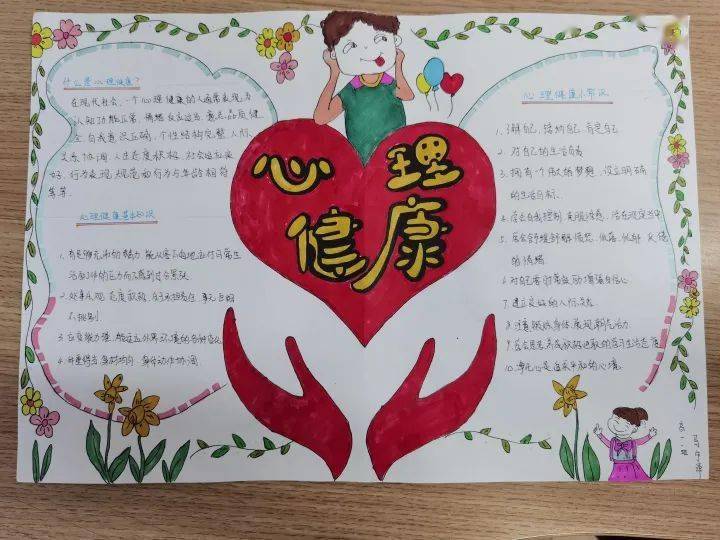 心理
健康
什么是心理健康?
在现代社会,一个心理健康的人通常表现为
认知功能正常、情绪反应适当、意志品质健
全、自我意识正确、个性结构完整、人际
关系协调、人生态度积极、社会适应良
好、行为表现规范和行为与年龄相符
等等。
心理健康基本知识
1. 有足够充沛的精力,能从容不迫地应付日常生
活和工作的压力而不感到过分紧张
2. 处事乐观,态度积极,乐于承担责任,事无巨细
不挑剔
3. 应变能力强,能适应外界环境的各种变化
4. 体重得当,身材均匀,身体动作协调
心理健康小常识
1. 了解自己、接纳自己、肯定自己
2. 对自己的生活负责
3. 拥有个伟大的梦想,设立明确
的生活目标。
4. 学会自我控制,克服诱惑,活在现实当中
5. 学会舒缓舒解愤怒、低落、忧郁
的情绪
6. 对自己要时常鼓励,增强自信心
7. 建立良好的人际关系
8. 注意锻炼身体,展现朝气活力
9. 学会思考养成积极进取的学习生活态度
10. 平和的心境
高一